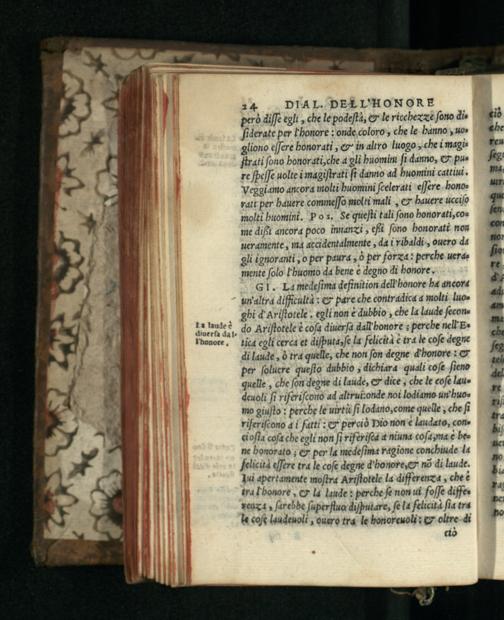 24 DIAL. DELL'HONORE
però disse egli, che le podestà, & le ricchezze sono di-
siderate per l'honore: onde coloro, che le hanno, uo-
gliono essere honorati, & in altro luogo, che i magi-
strati sono honorati, che a gli huomini si danno, & pu-
re spesse uolte i magistrati si danno ad huomini cattiui.
Veggiamo ancora molti huomini scelerati essere hono-
rati per hauere commesso molti mali, & hauere ucciso
molti huomini. Pos. Se questi tali sono honorati, co-
me dißi ancora poco innanzi, eßi sono honorati non
ueramente, ma accidentalmente, da i ribaldi, ouero da
gli ignoranti, o per paura, ò per forza: perche uera-
mente solo l'huomo da bene è degno di honore.
GI. La medesima definition dell'honore ha ancora
un'altra difficultà: & pare che contradica a molti luo-
ghi d'Aristotele. egli non è dubbio, che la laude secon-
La laude è
diuersa dal-
l'honore.
do Aristotele è cosa diuersa dall'honore; perche nell'E-
tica egli cerca et disputa, se la felicità è tra le cose degne
di laude, ò tra quelle, che non son degne d'honore: &
per soluere questo dubbio, dichiara quali cose sieno
quelle, che son degne di laude, & dice, che le cose lau-
deuoli si riferiscono ad altrui: onde noi lodiamo un'huo-
mo giusto: perche le uirtù si lodano, come quelle, che si
riferiscono a i fatti: & perciò Dio non è laudato, con-
ciosia cosa che egli non si riferisca a niuna cosa, ma è be-
ne honorato; & per la medesima ragione conchiude la
felicità essere tra le cose degne d'honore, & nõ di laude.
Qui apertamente mostra Aristotele la differenza, che è
tra l'honore, & la laude: perche se non ui fosse diffe-
renza, sarebbe superfluo disputare, se la felicità sia tra
le cose laudeuoli, ouero tra le honoreuoli: & oltre di
ciò